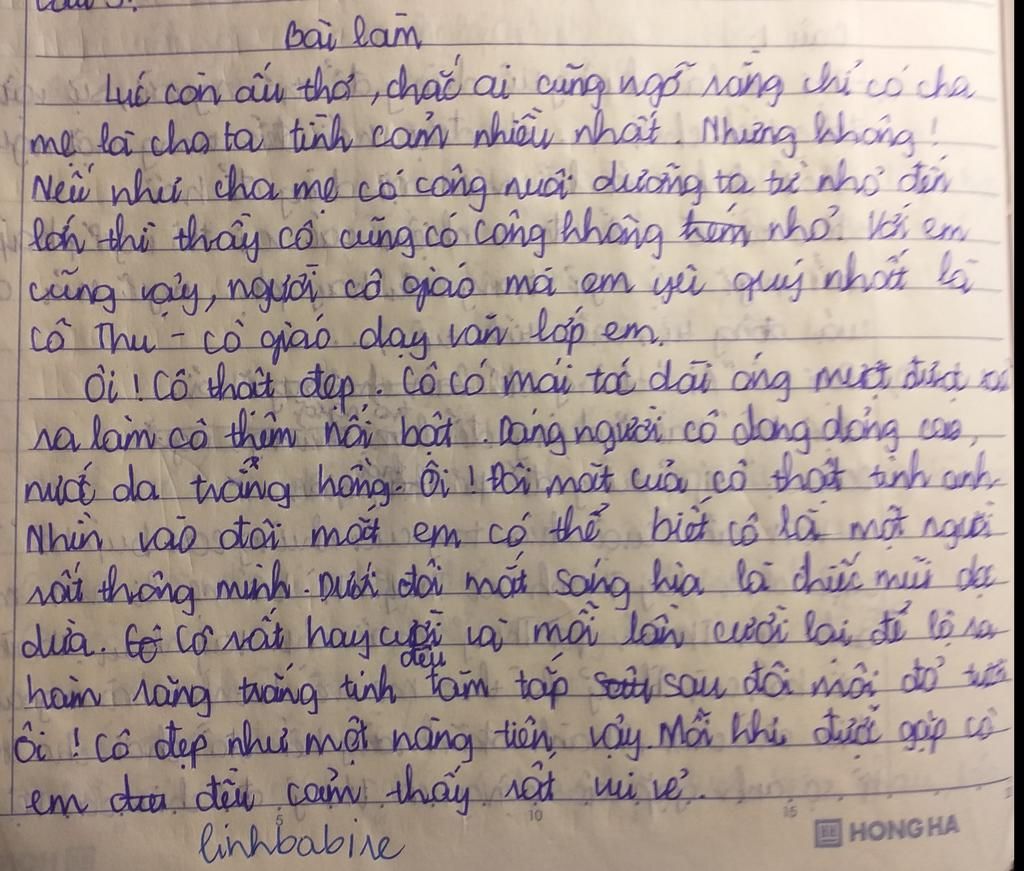 Bài làm
Lúc còn ấu thơ, chắc ai cũng ngỡ rằng chỉ có cha
mẹ là cho ta tình cảm nhiều nhất. Nhưng không!
Nếu như cha mẹ có công nuôi dưỡng ta từ nhỏ đến
lớn thì thầy cô cũng có công không nhỏ. Với em
cũng vậy, người cô giáo mà em yêu quý nhất là
cô Thu - cô giáo dạy văn lớp em.
Ôi! Cô thật đẹp. Cô có mái tóc dài óng mượt được
ra làm cô thêm nổi bật. Dáng người cô dong dỏng cao,
nước da trắng hồng. Ôi! Đôi mắt của cô thật tinh anh.
Nhìn vào đôi mắt em có thể biết cô là một người
rất thông minh. Dưới đôi mắt sáng kia là chiếc mũi dọc
dừa. Cô rất hay cười và mỗi lần cười lại để lộ ra
hàm răng trắng tinh đều tăm tắp sau đôi môi đỏ tươi
Ôi! Cô đẹp như một nàng tiên vậy. Mỗi khi được gặp cô
em đều cảm thấy rất vui vẻ.
linhbabire
5 10 15
HONG HA